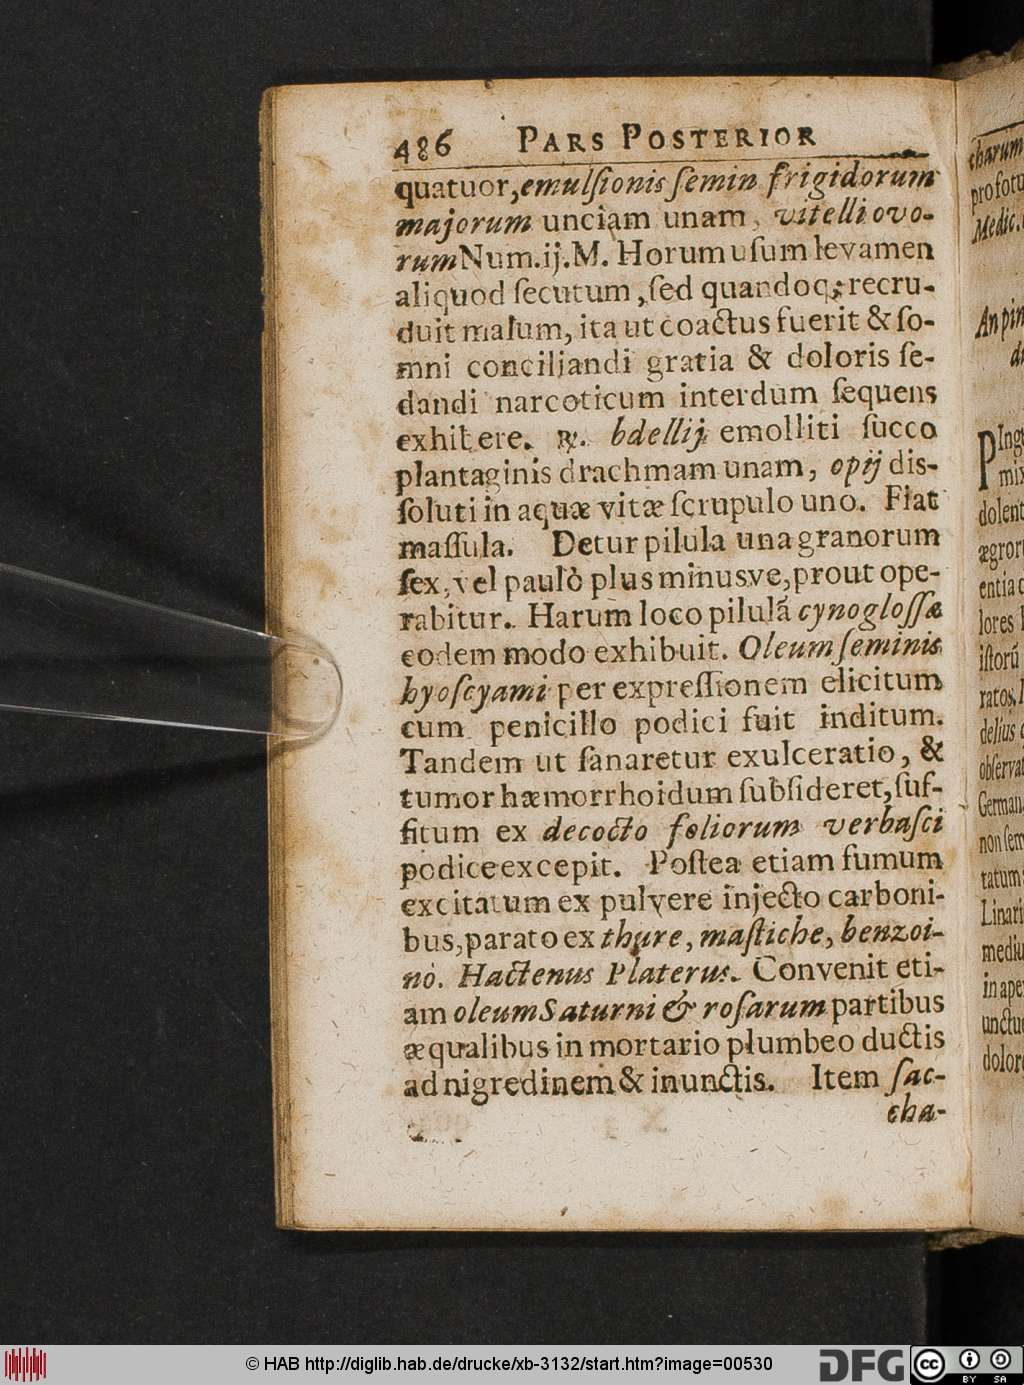 486 PARS POSTERIOR
quatuor, emulſionis ſemin frigidorum
majorum unciam unam, vitelli ovo-
rum Num.ij.M. Horum uſum levamen
aliquod ſecutum, ſed quandoq; recru-
duit malum, ita ut coactus fuerit & ſo-
mni conciliandi gratia & doloris ſe-
dandi narcoticum interdum ſequens
exhibere. ℞. bdellij emolliti ſucco
plantaginis drachmam unam, opij dis-
ſoluti in aquæ vitæ ſcrupulo uno. Fiat
maſſula. Detur pilula una granorum
ſex, vel paulò plus minusve, prout ope-
rabitur. Harum loco pilulã cynogloſſæ
eodem modo exhibuit. Oleum ſeminis
hyoſcyami per expreſſionem elicitum
cum penicillo podici fuit inditum.
Tandem ut ſanaretur exulceratio, &
tumor hæmorrhoidum ſubſideret, ſuf-
fitum ex decocto foliorum verbaſci
podice excepit. Poſtea etiam fumum
excitatum ex pulvere injecto carboni-
bus, parato ex thure, maſtiche, benzoi-
no. Hactenus Platerus. Convenit eti-
am oleum Saturni & roſarum partibus
æqualibus in mortario plumbeo ductis
ad nigredinem & inunctis. Item ſac-
cha-
charum
pro fotu
Medic.
An pin
PIngu
mix
dolent
ægror
entia
lores
iſtorũ
ratos,
delius
obſervat
German
non ſem
tatum
Linari
mediu
in ape
unctu
dolor
© HAB http://diglib.hab.de/drucke/xb-3132/start.htm?image=00530
DFG
cc BY SA